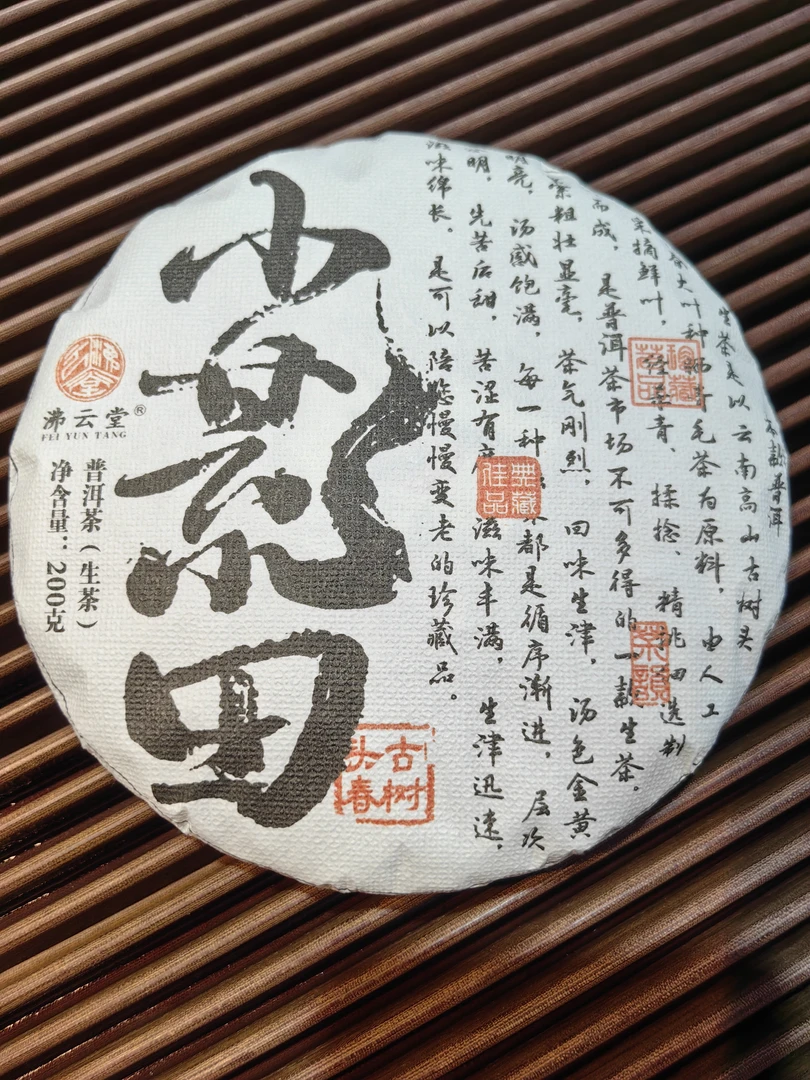 小荒田
沸云堂
沸云堂®
FEI YUN TANG
普洱茶(生茶)
净含量：200克
款普洱
生茶是以云南高山古树头
大叶种晒青毛茶为原料，由人工
采摘鲜叶，经杀青、揉捻、精挑细选制
而成，是普洱茶市场不可多得的一款生茶。
索粗壮显毫，茶气刚烈，回味生津，汤色金黄
明亮，汤感饱满，每一种都是循序渐进，层次
明，先苦后甜，苦涩有度，滋味丰满，生津迅速，
滋味绵长。是可以陪您慢慢变老的珍藏品。
珍藏茗品
典藏佳品
茶韵
古树头春